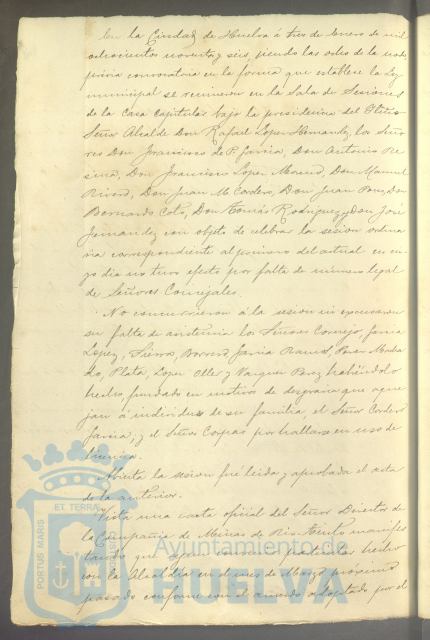 En la Ciudad de Huelva á tres de Enero de mil
ochocientos noventa y seis, siendo las ocho de la noche
prévia convocatoria en la forma que establece la Ley
municipal se reunieron en la Sala de Sesiones
de la Casa Capitular bajo la presidencia del
Señor Alcalde Don Rafael Lopez Hernandez, los Seño
res Don Francisco de P. Garcia, Don Antonio
Don Francisco Lopez Moreno, Don Manuel
Don Juan M. Cordero, Don Juan Don
Bernardo Don Tomás Rodriguez y Don José
Fernandez con objeto de celebrar la sesion ordina
ria correspondiente al primero del actual en cu
yo dia no tuvo efecto por falta de número legal
de Señores Concejales.
No concurrieron á la sesion ni excusaron
su falta de asistencia los Señores Garcia
Lopez, Garcia Ramos,
Plata, Lopez y Vazquez Perez habiéndolo
hecho, fundado en motivos de desgracia que aque
jan á individuos de su familia, el Señor Cordero
Garcia; y el Señor por hallarse en uso de
licencia.
Abierta la sesion fué leida y aprobada el acta
de la anterior.
Vista una carta oficial del Señor Director de
la Compañia de Minas de Rio-Tinto manifes
tando que
con la Alcaldia en el mes de Marzo próximo
pasado conforme con el acuerdo adoptado por el
PORTUS MARIS
ET TERRAE
Ayuntamiento de
HUELVA